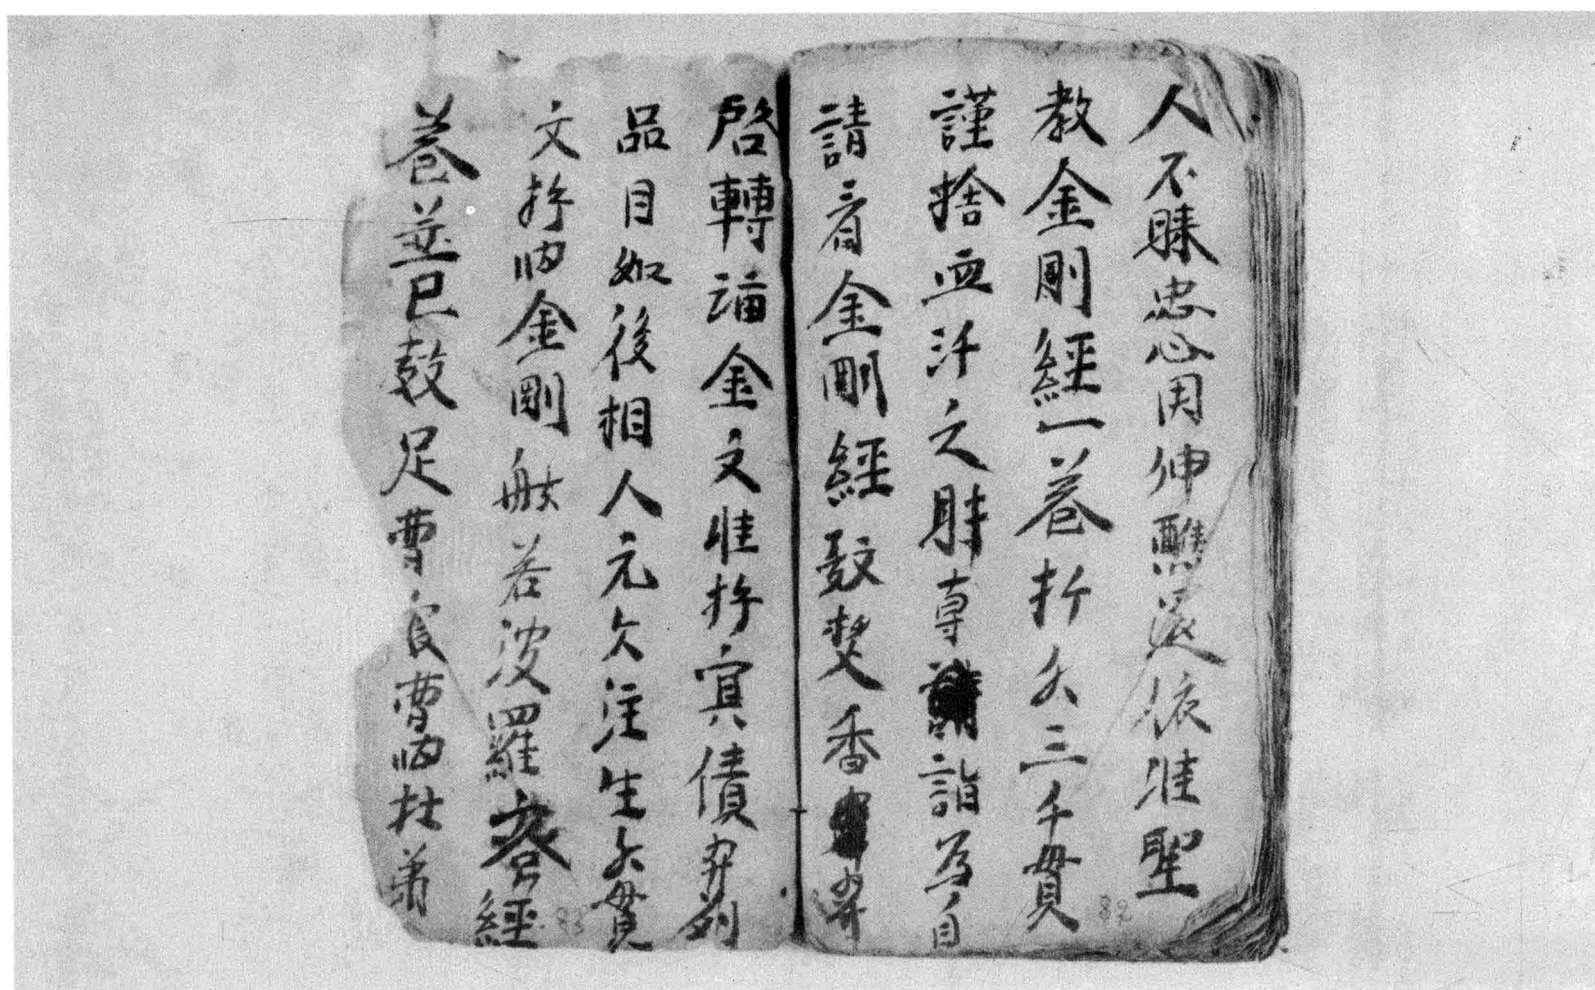 人不昧忠心用伸醮還依准聖
教金剛經一卷折欠三千貫
謹捨血汗之財專詣為自
請看金剛經数焚香
啓轉誦金文准折寘債開列
品目如後相人元欠注生欠貫
文折納金剛般若波羅經
卷並已数足曹官曹納杜弟